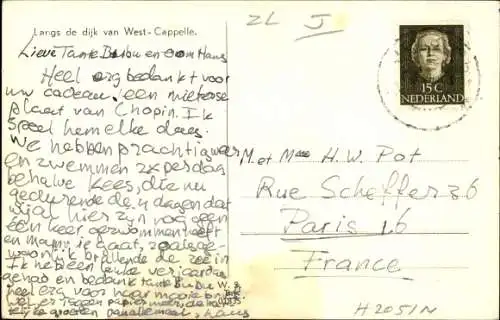 Langs de dijk van West-Cappelle.
ZL J
Lieve Tante Bubu en oom Hans
Heel erg bedankt voor
uw cadeau: een nieterse
plaat van Chopin. Ik
speel hem elke dag.
We hebben prachtig weer
en zwemmen 2x per dag
behalve Kees, die nu
gedurende de 14 dagen dat
wij al hier zijn nog geen
één keer gezwommen heeft
en mammie gaat, zoals ge-
woonlijk brullende de zee in
Ik heb een leuke verjaardag
gehad en bedank tante Bubu
heel erg voor haar mooie
wel er tegen papier
groeten Hans
15 C
NEDERLAND
M. et Mme H. W. Pot
Rue Scheffer 36
Paris 16
France
H2051N